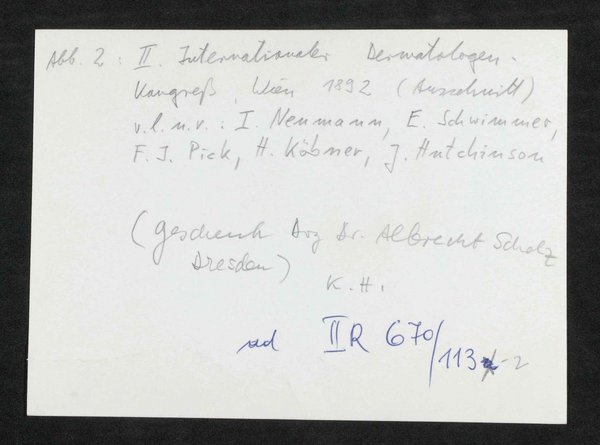 Abb. 2 : II. Internationaler Dermatologen-
Kongreß, Wien 1892 (Ausschnitt)
v.l.n.r. : I. Neumann, E. Schwimmer,
F. J. Pick, H. Köbner, J. Hutchinson
(Geschenk Doz Dr. Albrecht Scholz
Dresden)
K. H.
ad II R 670/113 -2